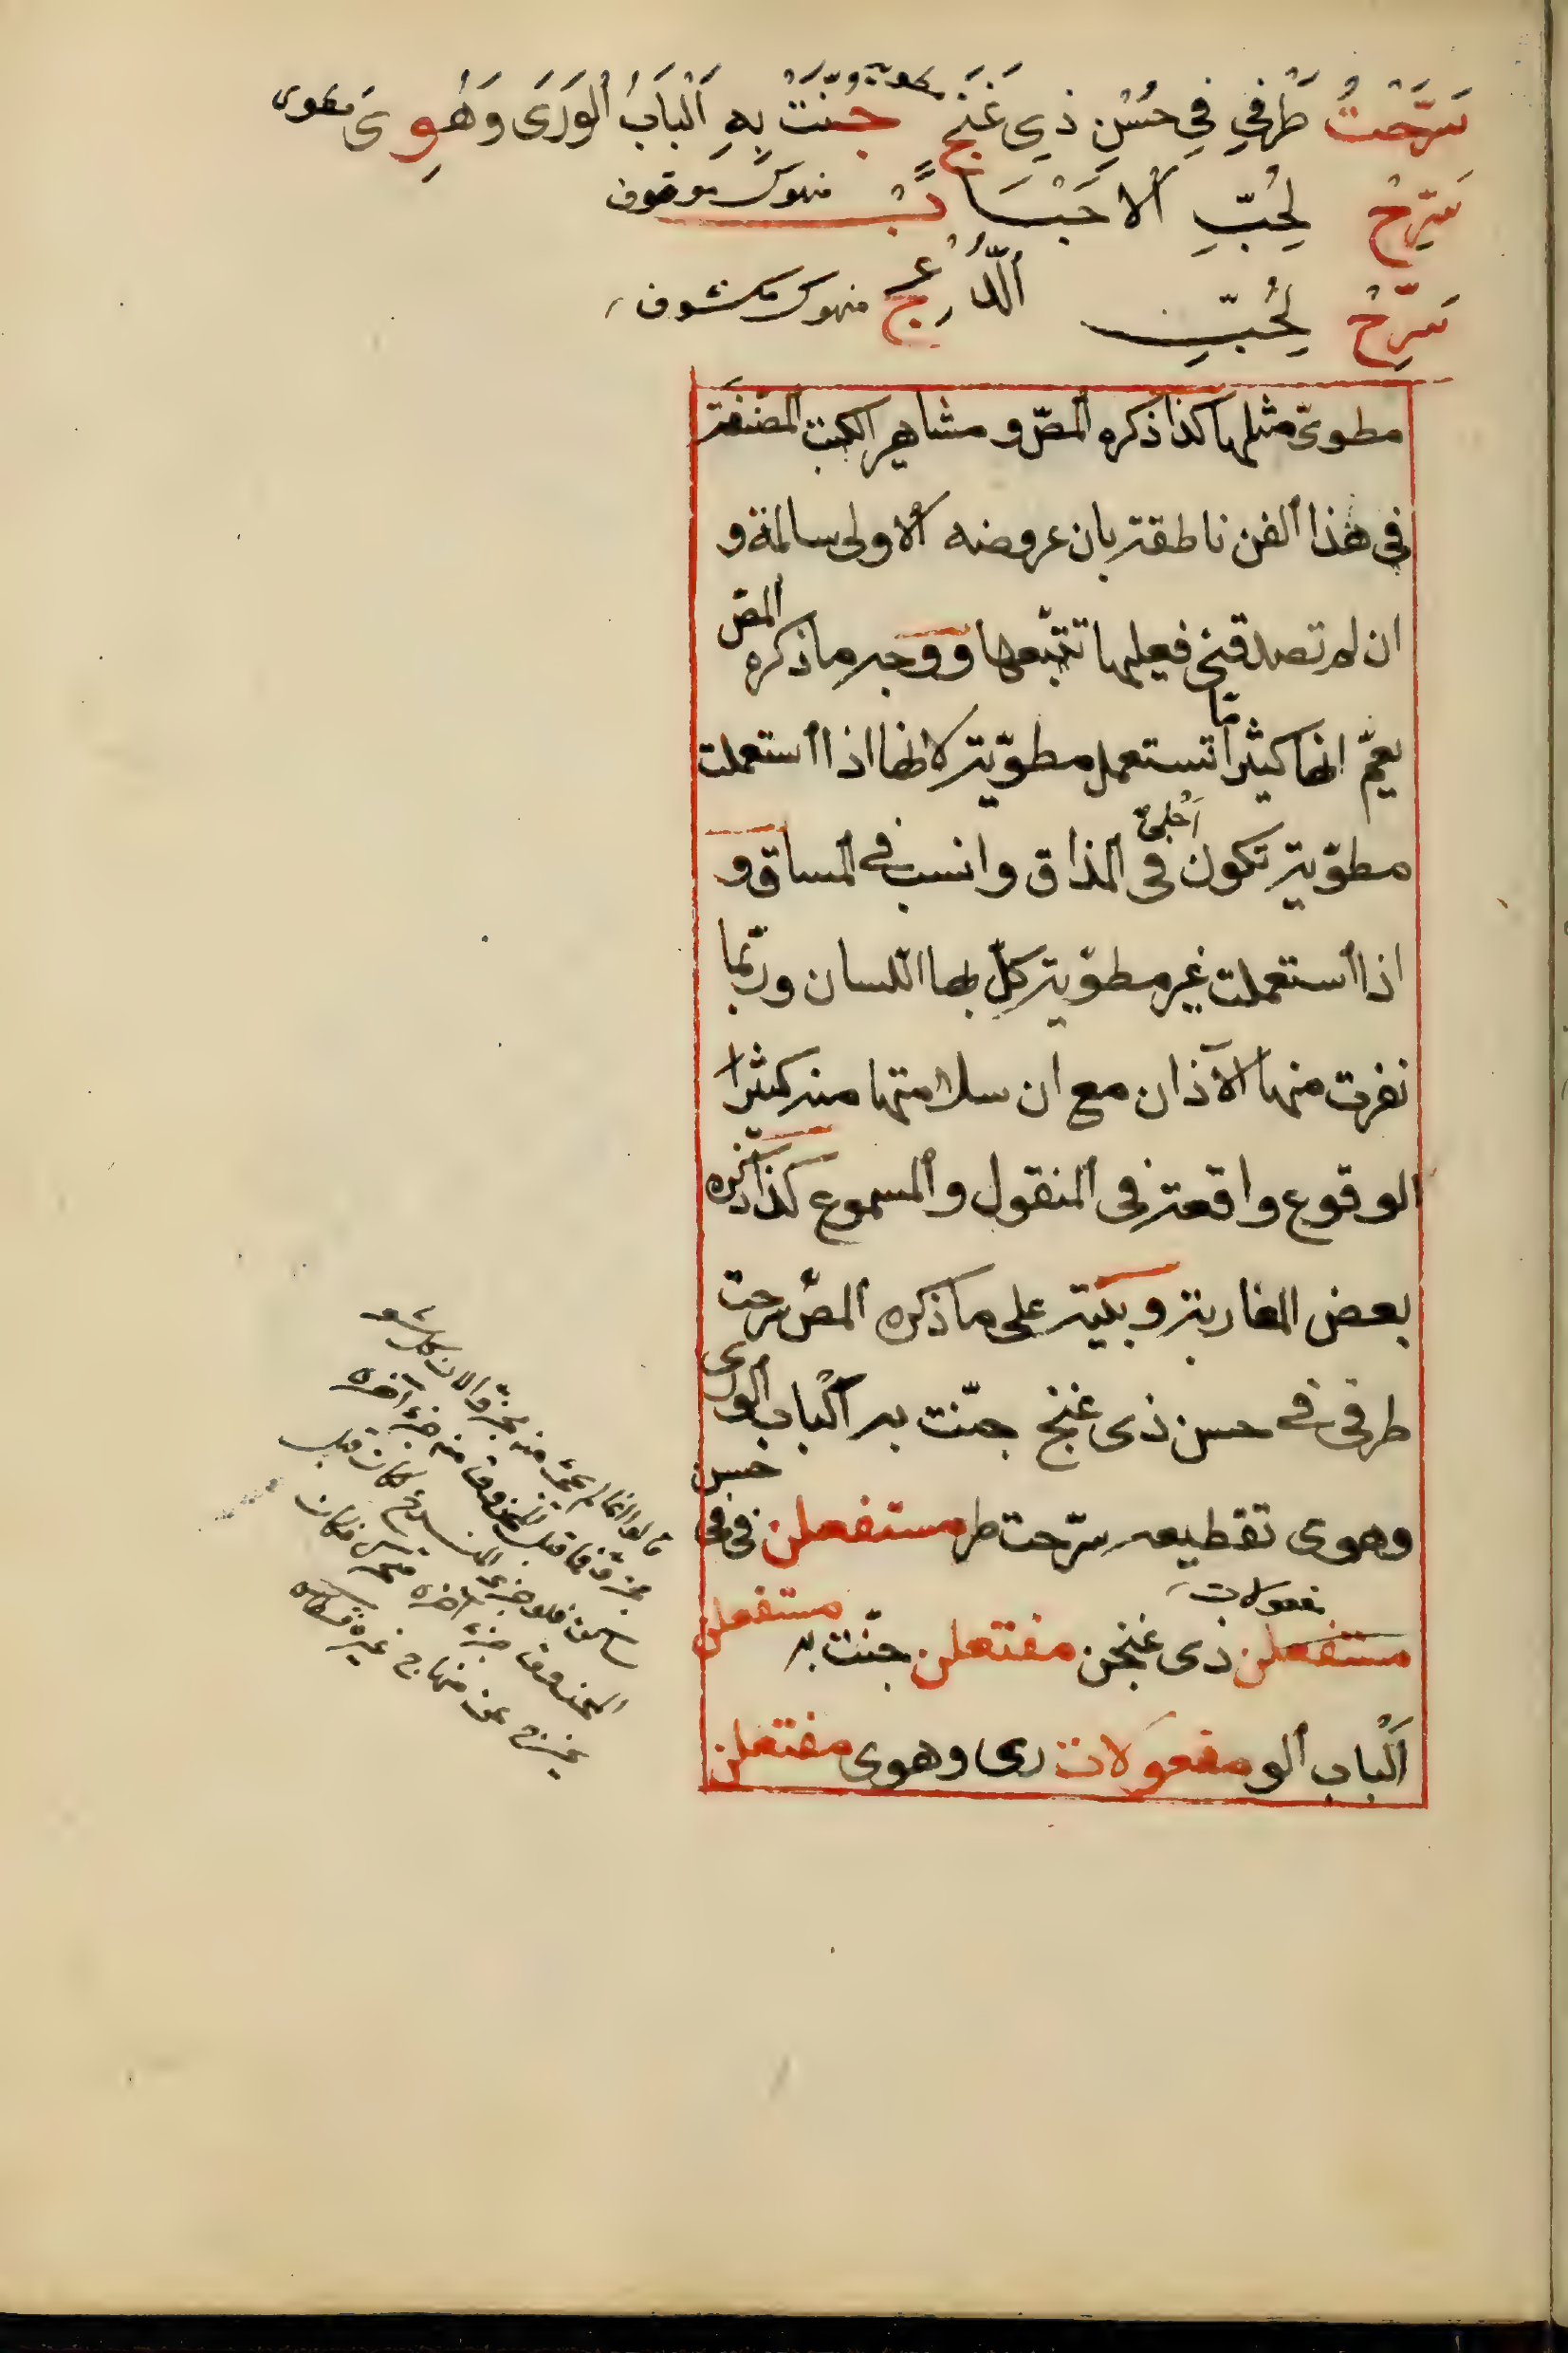 سَرَّحْتُ طَرْفِي فِي حُسْنِ ذِي غَنَجٍ مطوية جُنَّتْ بِهِ اَلْبَابُ الْوَرَى وَهُوِىَ مطوى
سَرِّحْ لِحُبِّ الْاَحْبَابْ منهوك موقوف
سَرِّحْ لِحُبِّ الدُّعْجِ منهوك مكشوف
مطوىّ مثلها كذا ذكره المصّ و مشاهير الكتب المصنفة
فى هذا الفن ناطقة بان عروضه الاولى سالمة و
ان لم تصدقنى فعليها تتبّعها و وجه ما ذكره المصّ
يعمّ انها كثيرا ما تستعمل مطوّية لانها اذا استعملت
مطوّية تكون اَحْلىٰ فى المذاق وانسب فى المساق و
اذا استعملت غير مطوّية كلّ بها اللسان وربّما
نفرت منها الآذان مع ان سلامتها منه كثيرا
الوقوع واقعة فى المنقول والمسموع كذا ذكره
بعض المغاربة و بيته على ما ذكره المصّ سرحت
طرفى فى حسن ذى غنج جنّت به اَلْباب الورى
وهوى تقطيعه سرّحت طر مستفعلن فى فى حسن
مفعولات
مستفعلن ذى غنجن مفتعلن جنّت به مستفعلن
اَلْباب الو مفعولات رى وهوى مفتعلن
قالوا انما لم يجئ منه مجزوّ الان كل شعر
ساكن فلو جزء المنسرح لكان قبل
المحذوف جزء آخره متحرك فكان
يخرج عن منهاج غيره